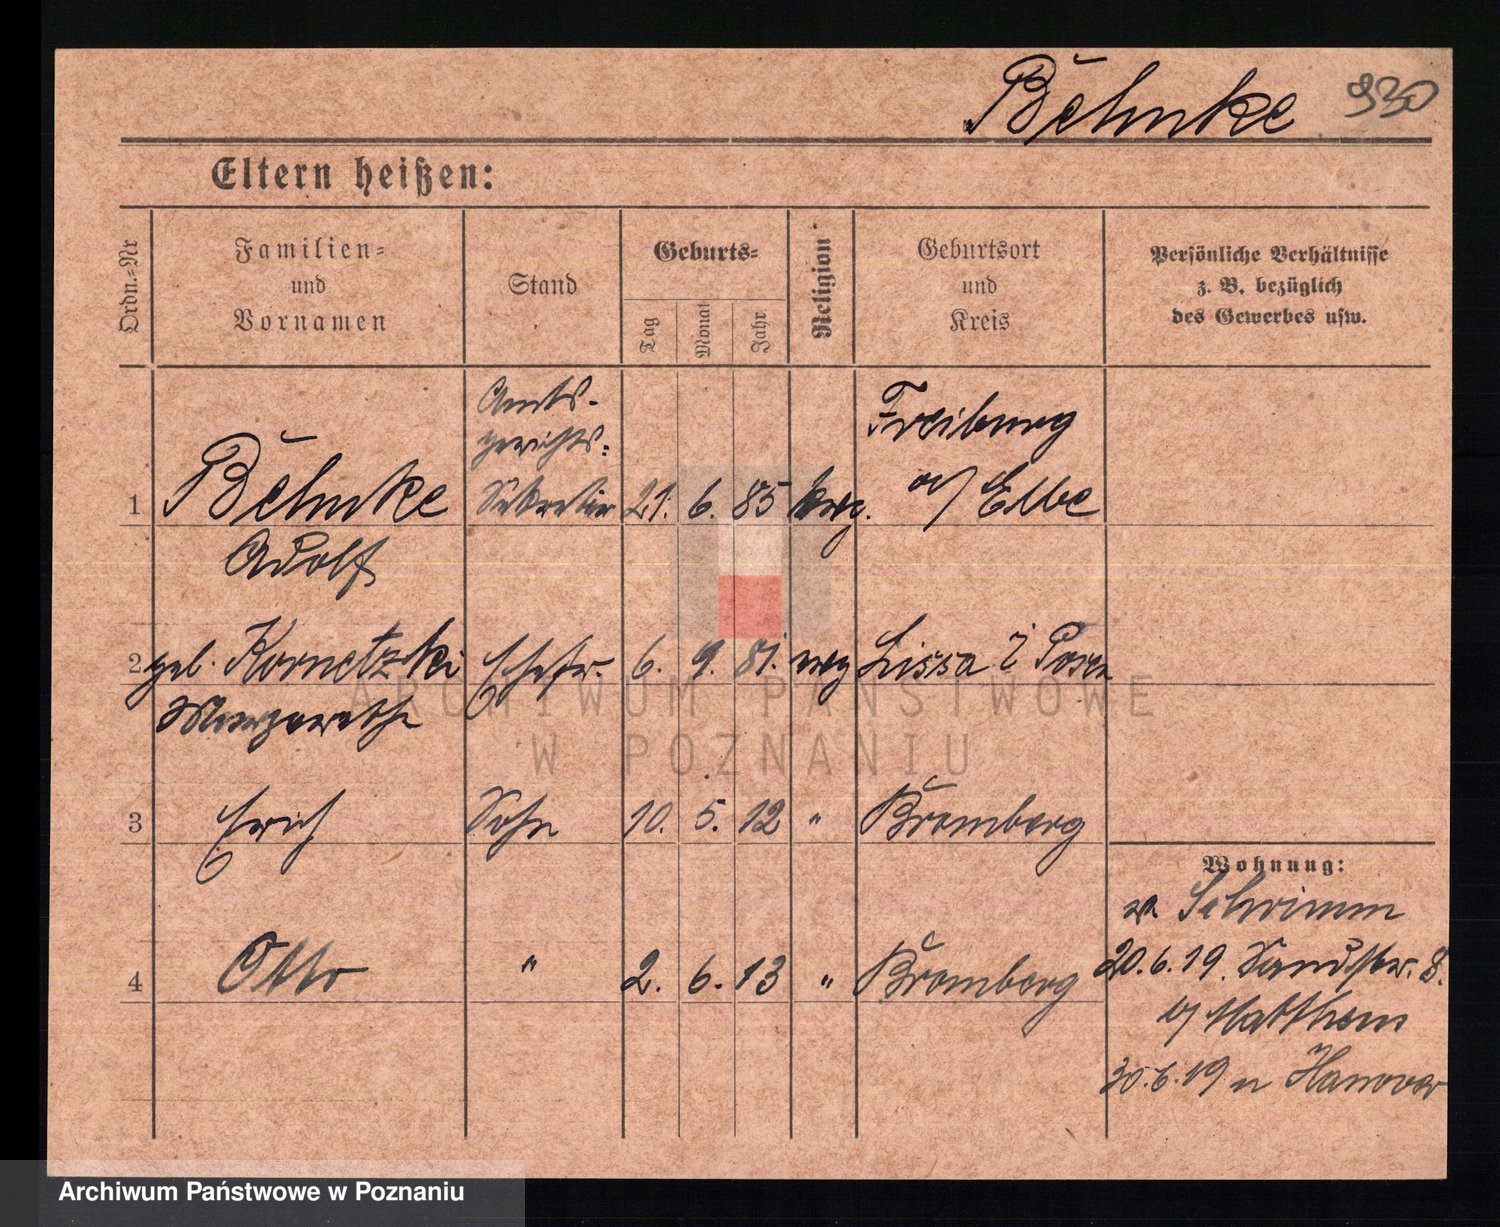 Behnke 930
Eltern heißen:
Ordn.-Nr
Familien-
und
Vornamen
Stand
Geburts-
Tag
Monat
Jahr
Religion
Geburtsort
und
Kreis
Persönliche Verhältnisse
z. B. bezüglich
des Gewerbes usw.
Amts-
gerichts-
1 Behnke Sekretär 21. 6. 85 evg. Freiburg
a/ Elbe
Adolf
2 geb. Kornetzki Ehefr. 6. 9. 81. evg Lissa i Posen
Margarethe
3 Erich Sohn 10. 5. 12 " Bromberg
Wohnung:
Schrimm
4 Otto " 2. 6. 13 " Bromberg
20.6.19. 8.
b/ Matthem
30.6.19 n Hanover
ARCHIWUM PAŃSTWOWE
W POZNANIU
Archiwum Państwowe w Poznaniu